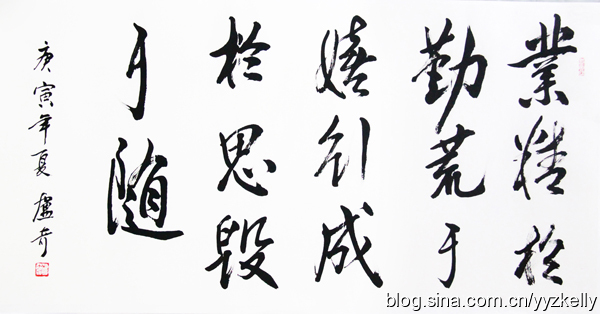 業精於
勤荒于
嬉行成
於思毁
于随
庚寅年夏 盧奇
blog.sina.com.cn/yyzkelly